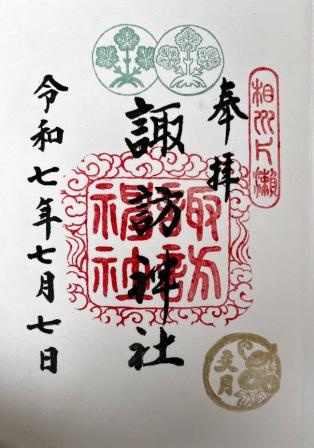 相州片瀬
奉拝
諏訪神社
諏訪神社
令和七年七月七日
文月